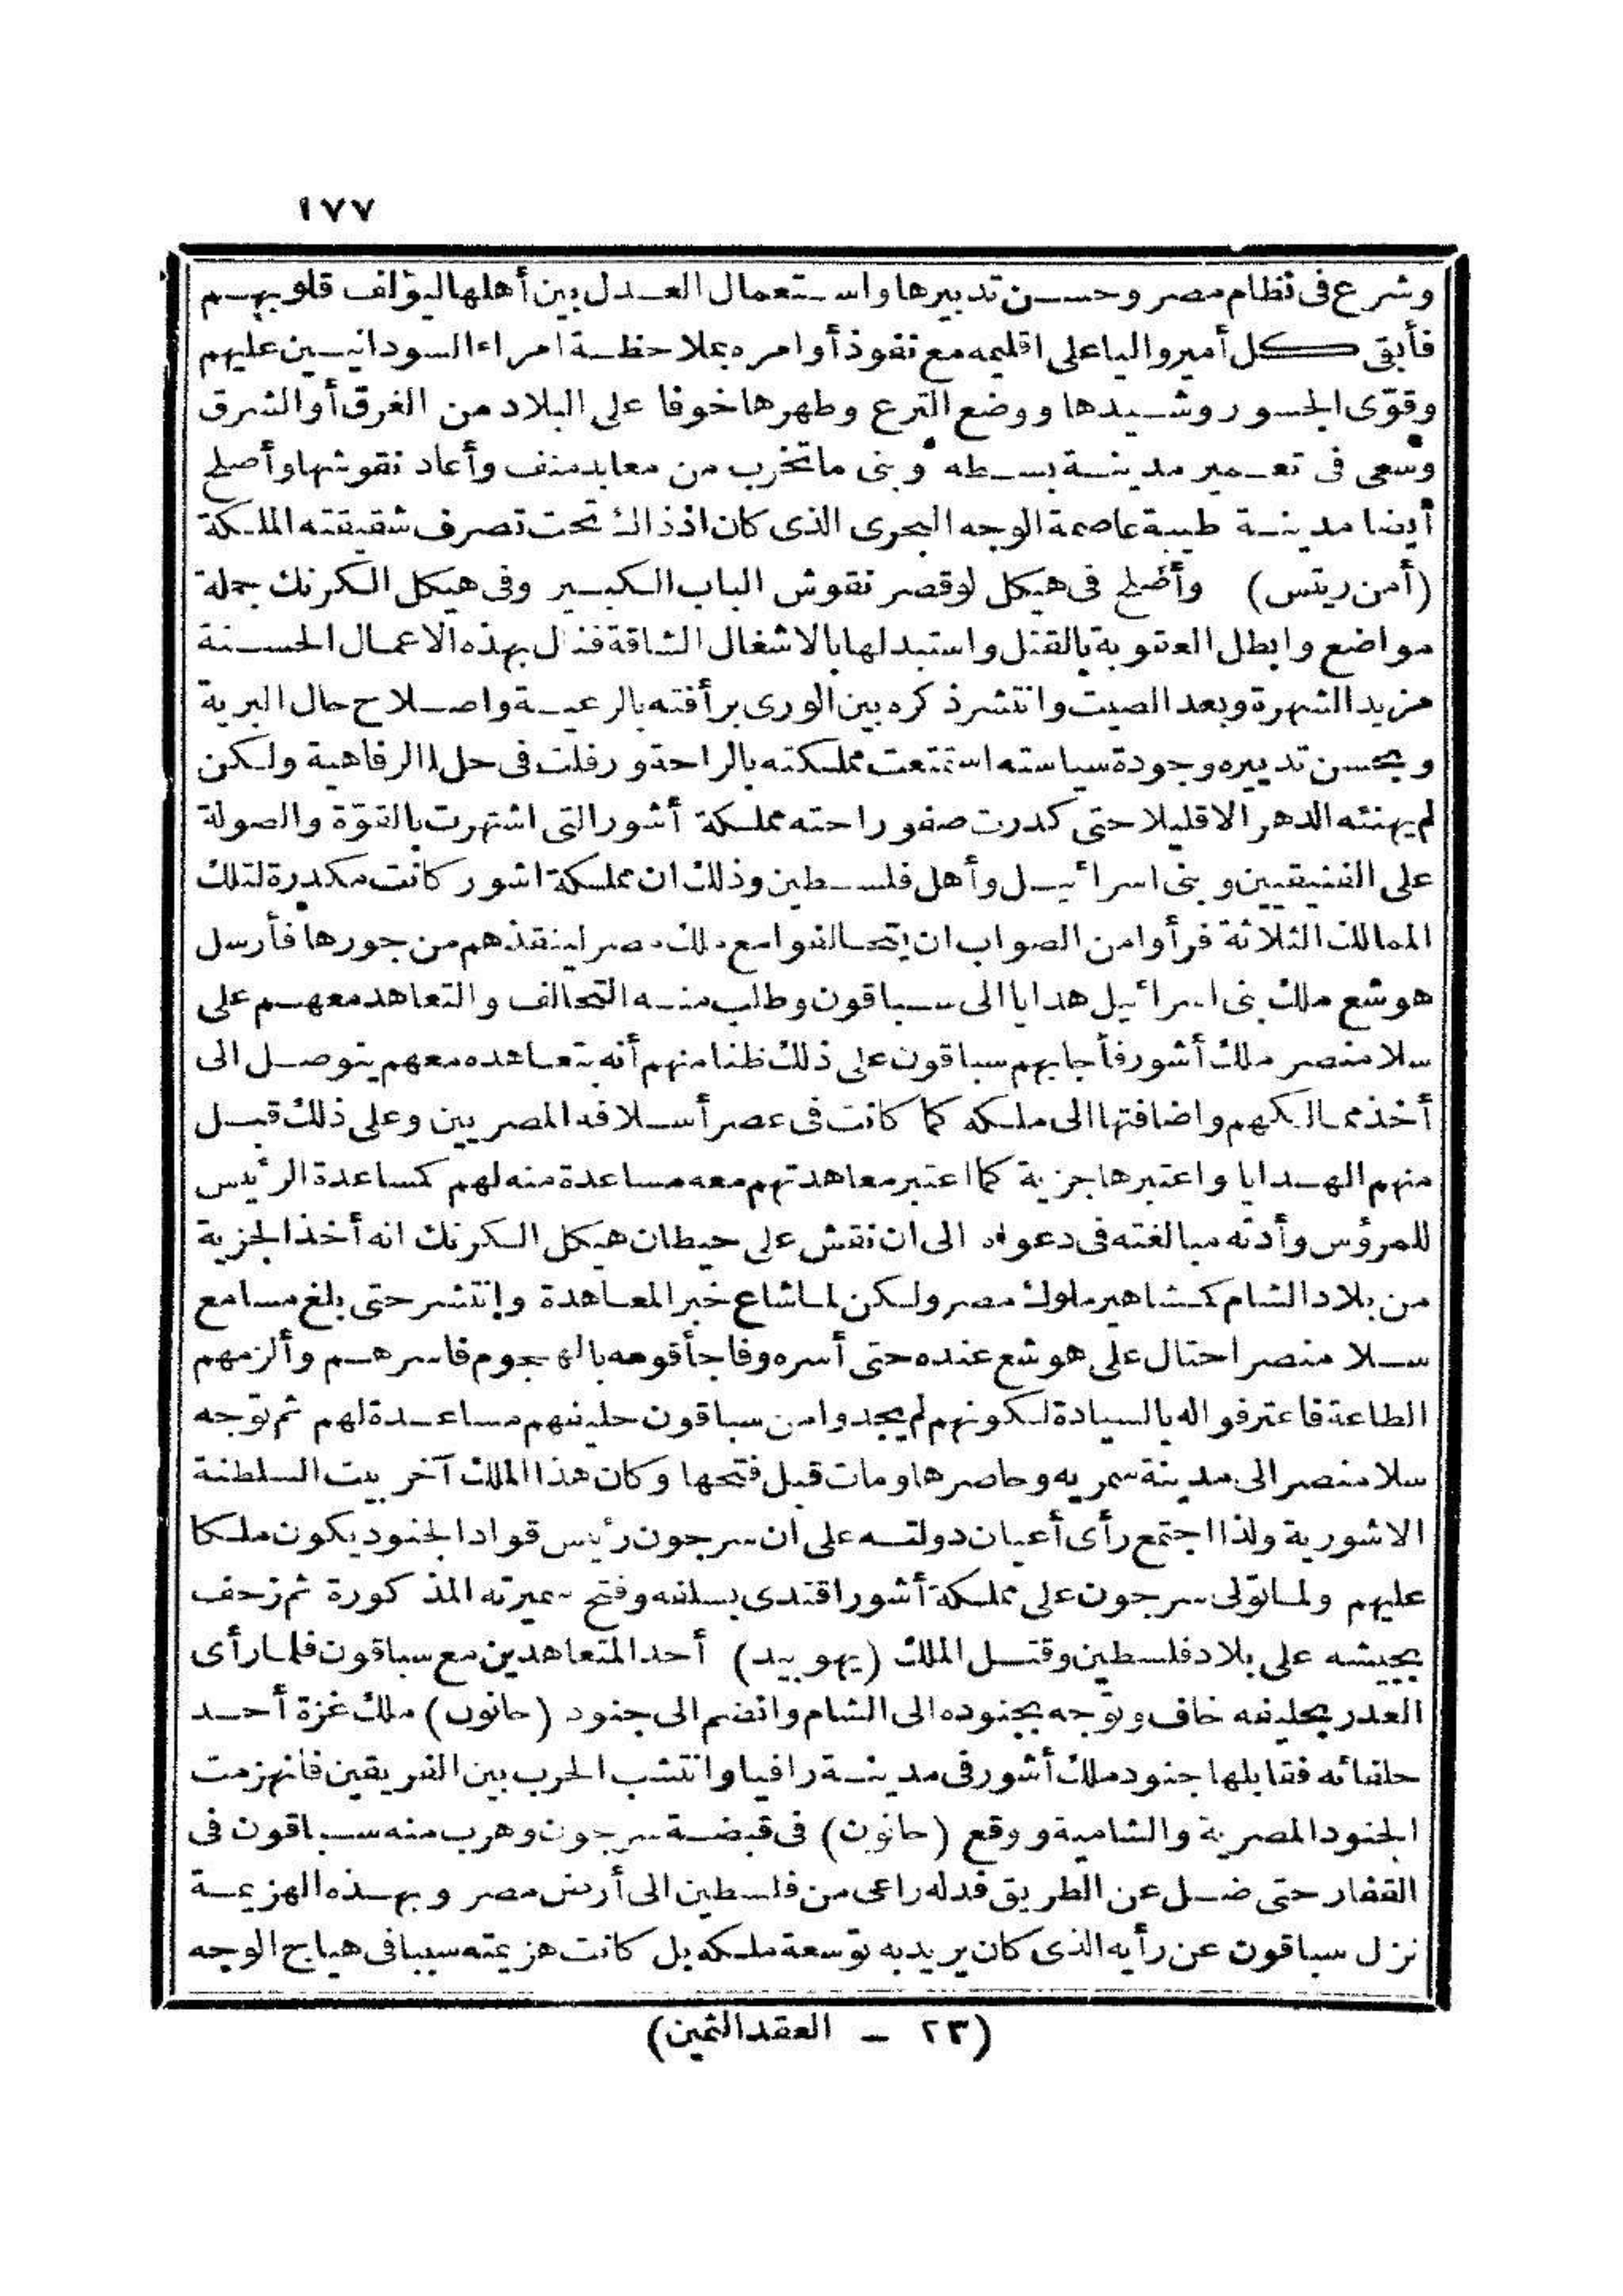 ١٧٧
وشرع فى نظام مصر وحسن تدبيرها واستعمال العدل بين أهلها ليؤلف قلوبهم
فأبقى كل أمير واليا على اقليمه مع نفوذ أوامره بملاحظة امراء السودانيين عليهم
وقوّى الجسور وشيدها ووضع الترع وطهرها خوفا على البلاد من الغرق أو الشرق
وسعى فى تعمير مدينة بسطه وبنى ما تخرب من معابد منف وأعاد نقوشها وأصلح
أيضا مدينة طيبة عاصمة الوجه البحرى الذى كان اذ ذاك تحت تصرف شقيقته الملكة
(أمن ريتس) وأصلح فى هيكل لوقصر نقوش الباب الكبير وفى هيكل الكرنك جملة
مواضع وابطل العقوبة بالقتل واستبدلها بالاشغال الشاقة فنال بهذه الاعمال الحسنة
مزيد الشهرة وبعد الصيت وانتشر ذكره بين الورى برأفته بالرعية واصلاح حال البرية
وبحسن تدبيره وجودة سياسته استمتعت مملكته بالراحة ورفلت فى حلل الرفاهية ولكن
لم يهنئه الدهر الا قليلا حتى كدرت صفو راحته مملكة أشور التى اشتهرت بالقوّة والصولة
على الفنيقيين وبنى اسرائيل وأهل فلسطين وذلك ان مملكة اشور كانت مكدرة لتلك
الممالك الثلاثة فرأوا من الصواب ان يتحالفوا مع ملك مصر لينقذهم من جورها فأرسل
هوشع ملك بنى اسرائيل هدايا الى سباقون وطلب منه التحالف والتعاهد معهم على
سلا منصر ملك أشور فأجابهم سباقون على ذلك ظنا منهم أنه بتعاهده معهم يتوصل الى
أخذ ممالكهم واضافتها الى ملكه كما كانت فى عصر أسلافه المصريين وعلى ذلك قبل
منهم الهدايا واعتبرها جزية كما اعتبر معاهدتهم معه مساعدة منه لهم كمساعدة الرئيس
للمرؤس وأدته مبالغته فى دعواه الى ان نقش على حيطان هيكل الكرنك انه أخذ الجزية
من بلاد الشام كمشاهير ملوك مصر ولكن لما شاع خبر المعاهدة وانتشر حتى بلغ مسامع
سلا منصر احتال على هوشع عنده حتى أسره وفاجأ قومه بالهجوم فاسرهم وألزمهم
الطاعة فاعترفوا له بالسيادة لكونهم لم يجدوا من سباقون حليفهم مساعدة لهم ثم توّجه
سلا منصر الى مدينة سمريه وحاصرها ومات قبل فتحها وكان هذا الملك آخر بيت السلطنة
الاشورية ولذا اجتمع رأى أعيان دولته على ان سرجون رئيس قواد الجنود يكون ملكا
عليهم ولما توّلى سرجون على مملكة أشور اقتدى بسلفه وفتح سميرته المذكورة ثم زحف
بجيشه على بلاد فلسطين وقتل الملك (يهوبيد) أحد المتعاهدين مع سباقون فلما رأى
الغدر بحليفه خاف وتوّجه بجنوده الى الشام وانضم الى جنود (حانون) ملك غزة أحد
حلفائه فقابلها جنود ملك أشور فى مدينة رافيا وانتشب الحرب بين الفريقين فانهزمت
الجنود المصرية والشامية ووقع (حانون) فى قبضة سرجون وهرب منه سباقون فى
القفار حتى ضل عن الطريق فدله راعى من فلسطين الى أرض مصر وبهذه الهزيمة
نزل سباقون عن رأيه الذى كان يريد به توسعة ملكه بل كانت هزيمته سببا فى هياج الوجه
(٢٣ - العقد الثمين)